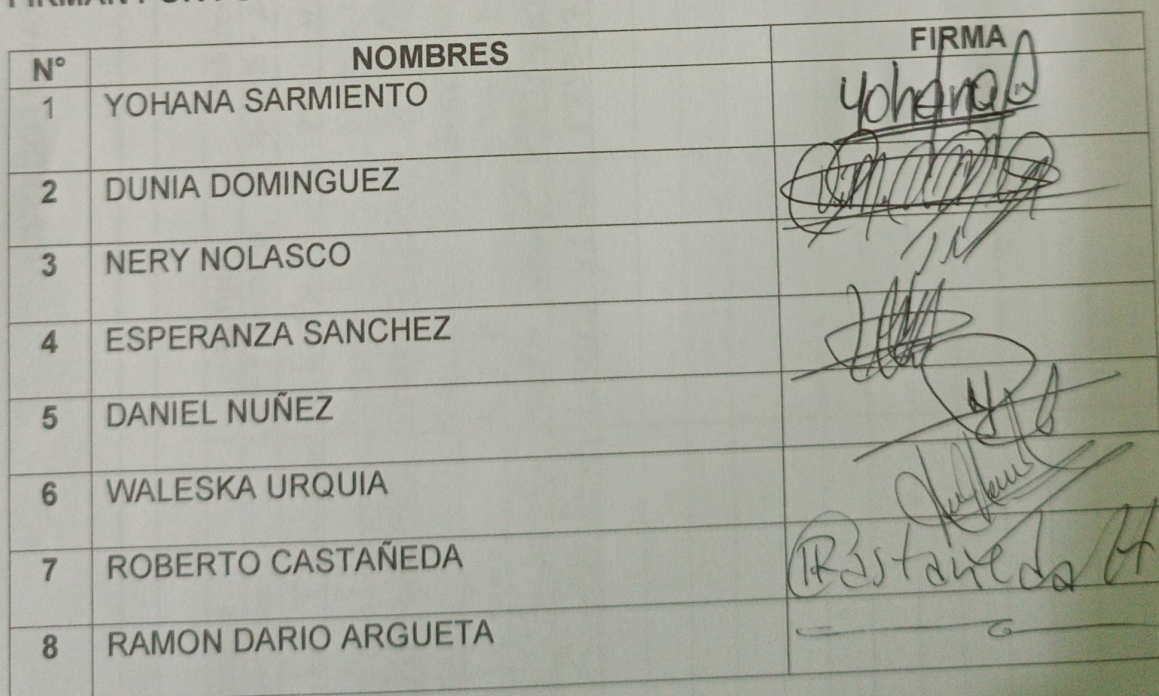 N° NOMBRES FIRMA
1 YOHANA SARMIENTO Yohana
2 DUNIA DOMINGUEZ
3 NERY NOLASCO
4 ESPERANZA SANCHEZ
5 DANIEL NUÑEZ
6 WALESKA URQUIA
7 ROBERTO CASTAÑEDA RCastañeda H
8 RAMON DARIO ARGUETA